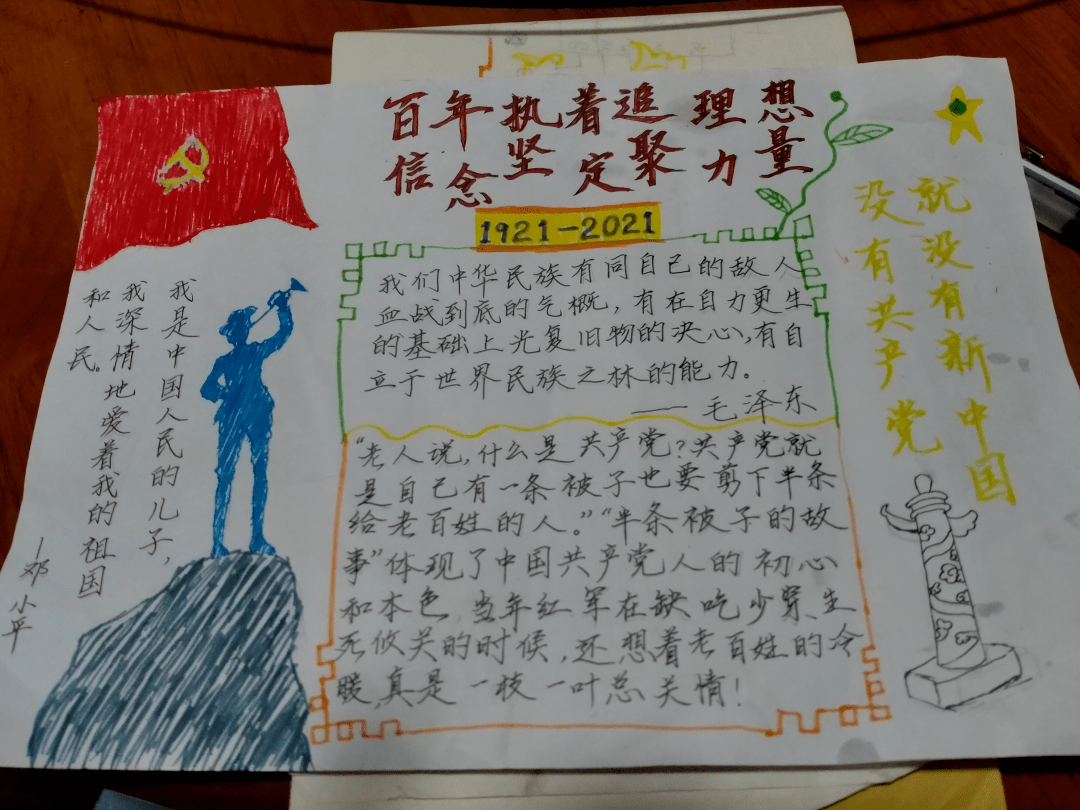 百年执着追理想
信念坚定聚力量
1921-2021
我们中华民族有同自己的敌人
血战到底的气概，有在自力更生
的基础上光复旧物的决心，有自
立于世界民族之林的能力。
—— 毛泽东
“老人说，什么是共产党？共产党就
是自己有一条被子也要剪下半条
给老百姓的人。”“半条被子的故
事”体现了中国共产党人的初心
和本色，当年红军在缺吃少穿、生
死攸关的时候，还想着老百姓的冷
暖，真是一枝一叶总关情！
我是中国人民的儿子，
我深情地爱着我的祖国
和人民。
—邓小平
没有共产党
就没有新中国